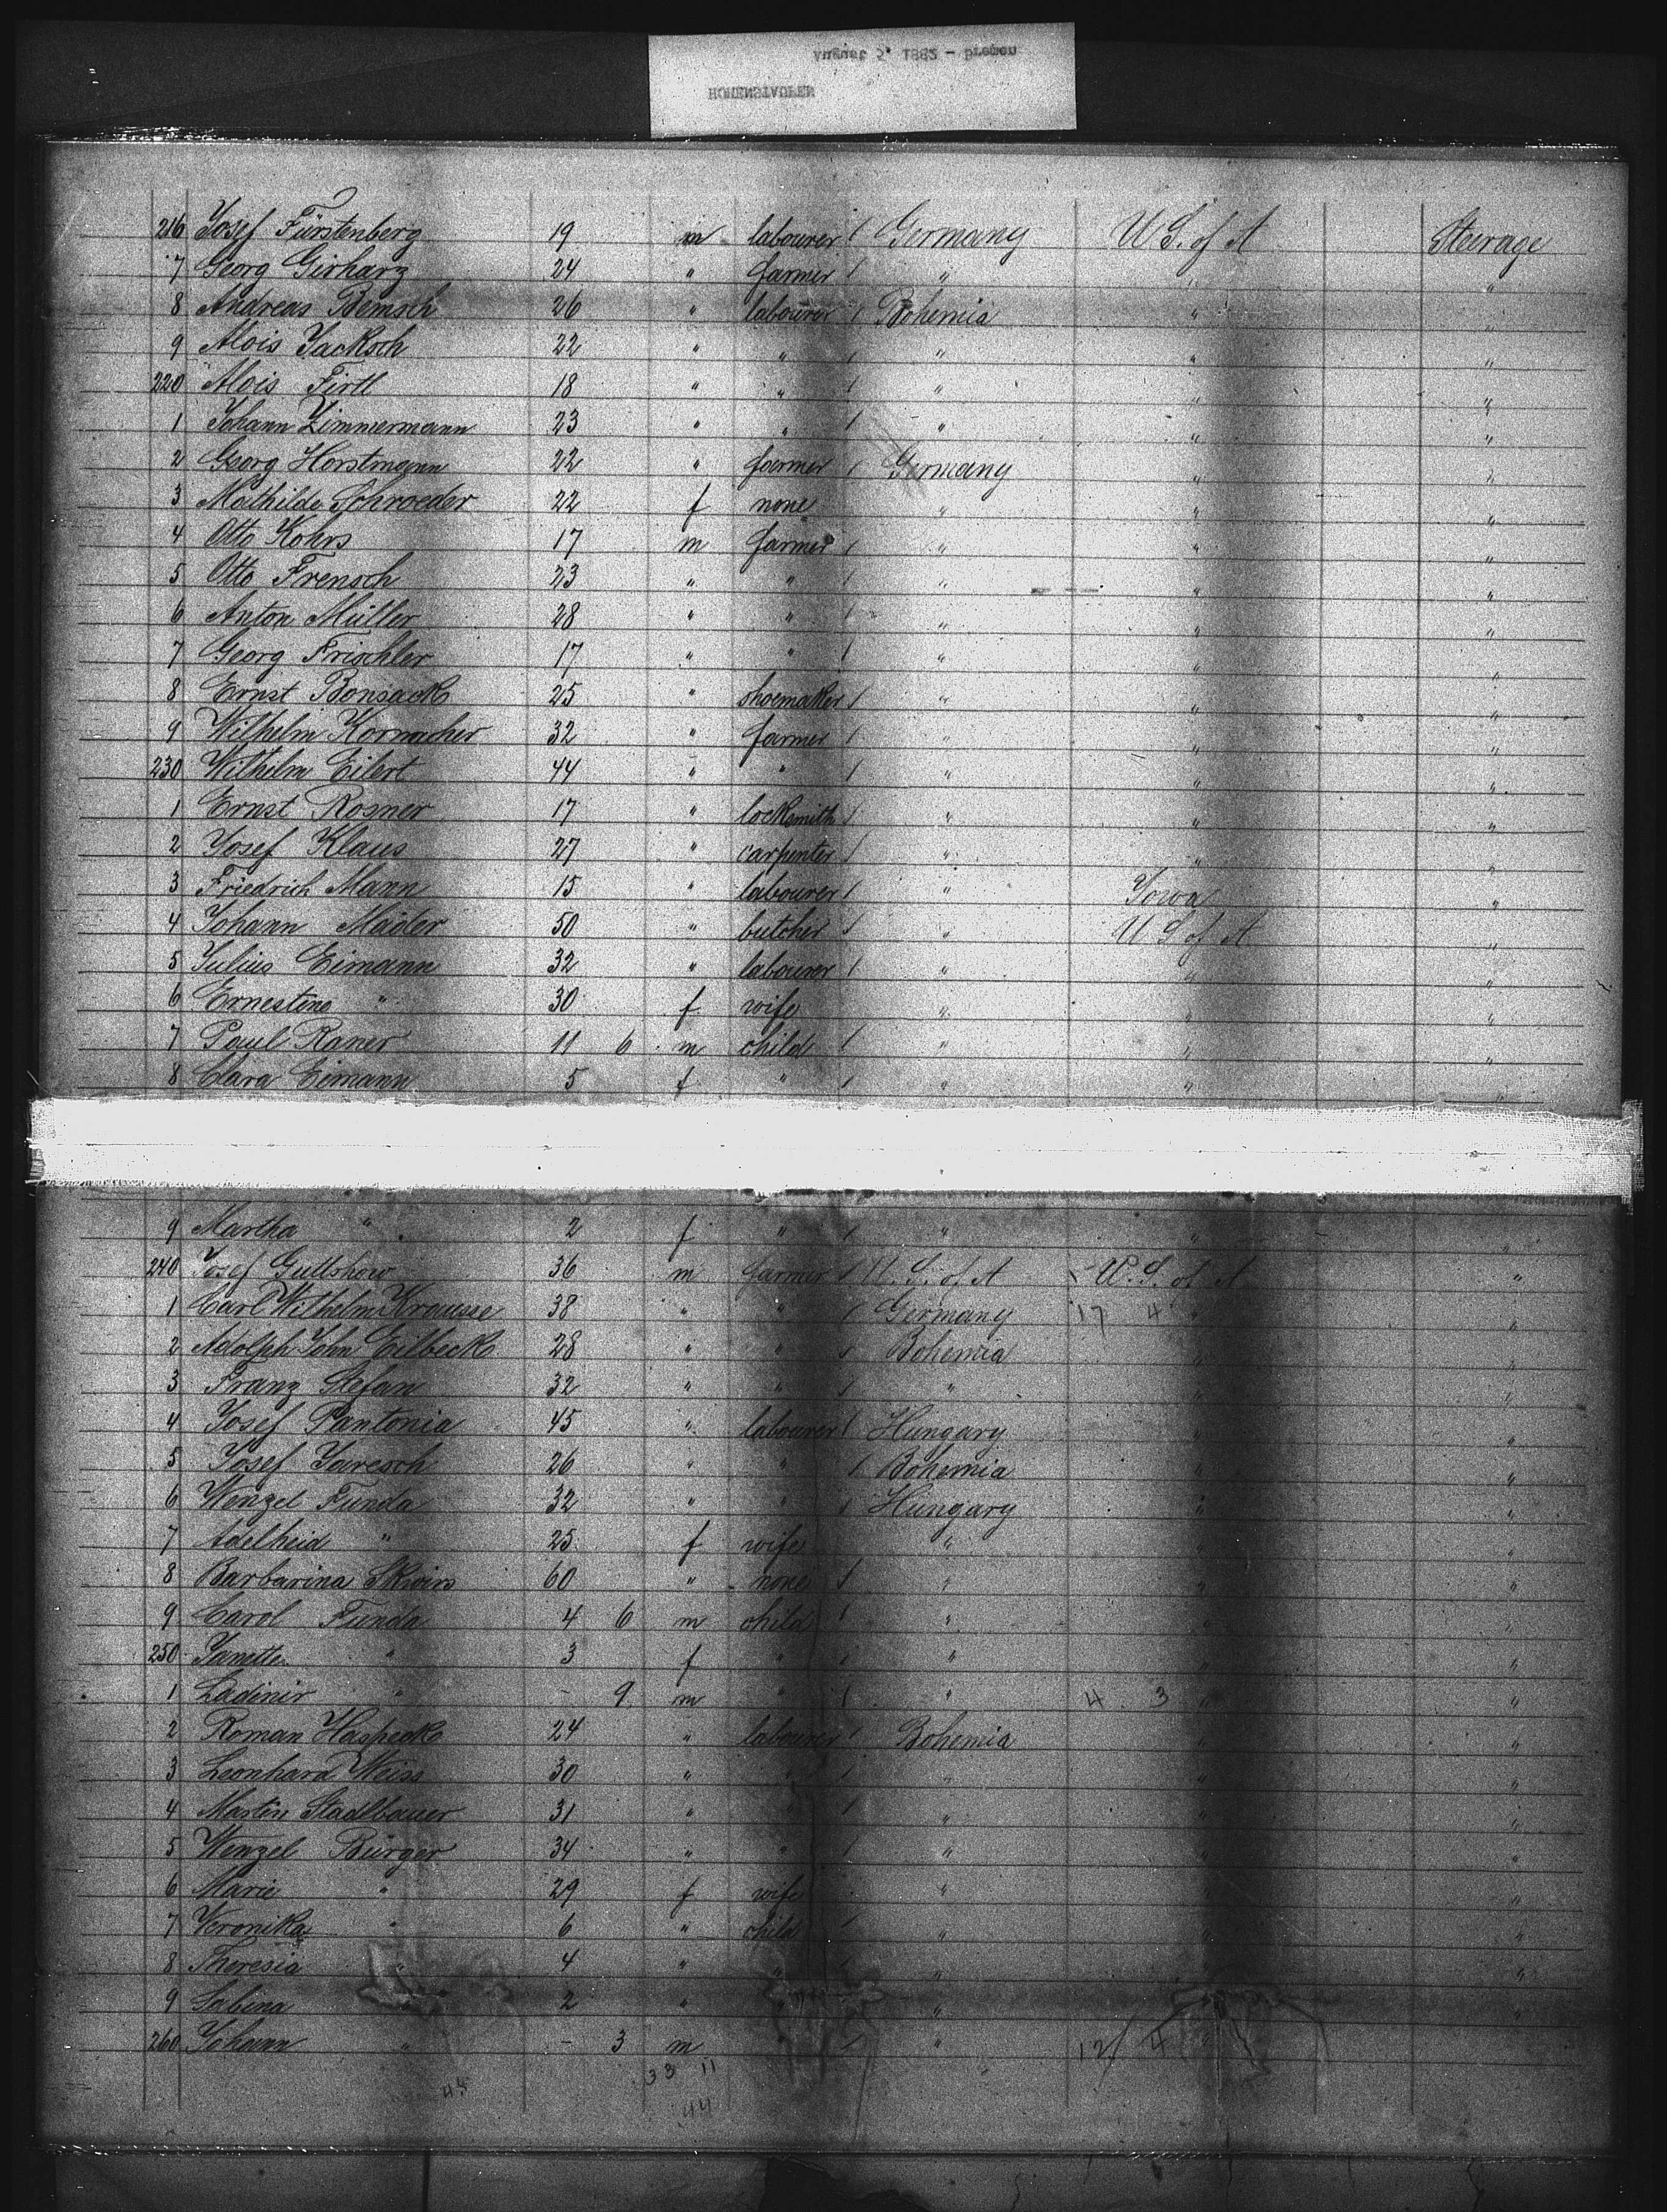 August 5, 1882 - Bremen
HOHENSTAUFEN
216 Josef Fürstenberg 19 m labourer / Germany U S. of A Steerage
7 Georg Girharz 24 " farmer / " " "
8 Andreas Bemsch 26 " labourer / Bohemia " "
9 Alois Jacksch 22 " " / " " "
220 Alois Firtl 18 " " / " " "
1 Johann Zimmermann 23 " " / " " "
2 Georg Horstmann 22 " farmer / Germany " "
3 Mathilde Schroeder 22 f none " " "
4 Otto Kohrs 17 m farmer / " " "
5 Otto Frensch 23 " " / " " "
6 Anton Müller 28 " " / " " "
7 Georg Frischler 17 " " / " " "
8 Ernst Bonsack 25 " shoemaker / " " "
9 Wilhelm Kornacher 32 " farmer / " " "
230 Wilhelm Eilert 44 " " / " " "
1 Ernst Rosner 17 " locksmith / " " "
2 Josef Klaus 27 " carpenter / " " "
3 Friedrich Mann 15 " labourer / " Iowa "
4 Johann Mäder 50 " butcher / " U S of A "
5 Julius Eimann 32 " labourer / " " "
6 Ernestine " 30 f wife " " "
7 Paul Raner 11 6 m child / " " "
8 Clara Eimann 5 f " / " " "
9 Martha " 2 f " / " " "
240 Josef Guttshow 36 m farmer / U. S. of A U. S. of A "
1 Carl Wilhelm Krausse 38 " " / Germany 17 4 " "
2 Adolph John Eilbeck 28 " " / Bohemia " "
3 Franz Stefan 32 " " / " " "
4 Josef Pantonia 45 " labourer / Hungary " "
5 Josef Jaresch 26 " " / Bohemia " "
6 Wenzel Funda 32 " " / Hungary " "
7 Adelheid " 25 f wife " " "
8 Barbarina 60 " none / " " "
9 Carol Funda 4 6 m child / " " "
250 Janette " 3 f " / " " "
1 Ladinir " - 9 m " / " 4 3 " "
2 Roman Haspeck 24 " labourer / Bohemia " "
3 Leonhard Weiss 30 " " / " " "
4 Martin Stadlbauer 31 " " / " " "
5 Wenzel Bürger 34 " " / " " "
6 Marie " 29 f wife " " "
7 Veronika " 6 " child / " " "
8 Theresia " 4 " " / " " "
9 Sabina " 2 " " / " " "
260 Johann " - 3 m " / " 12 4 "
33 11
44
44